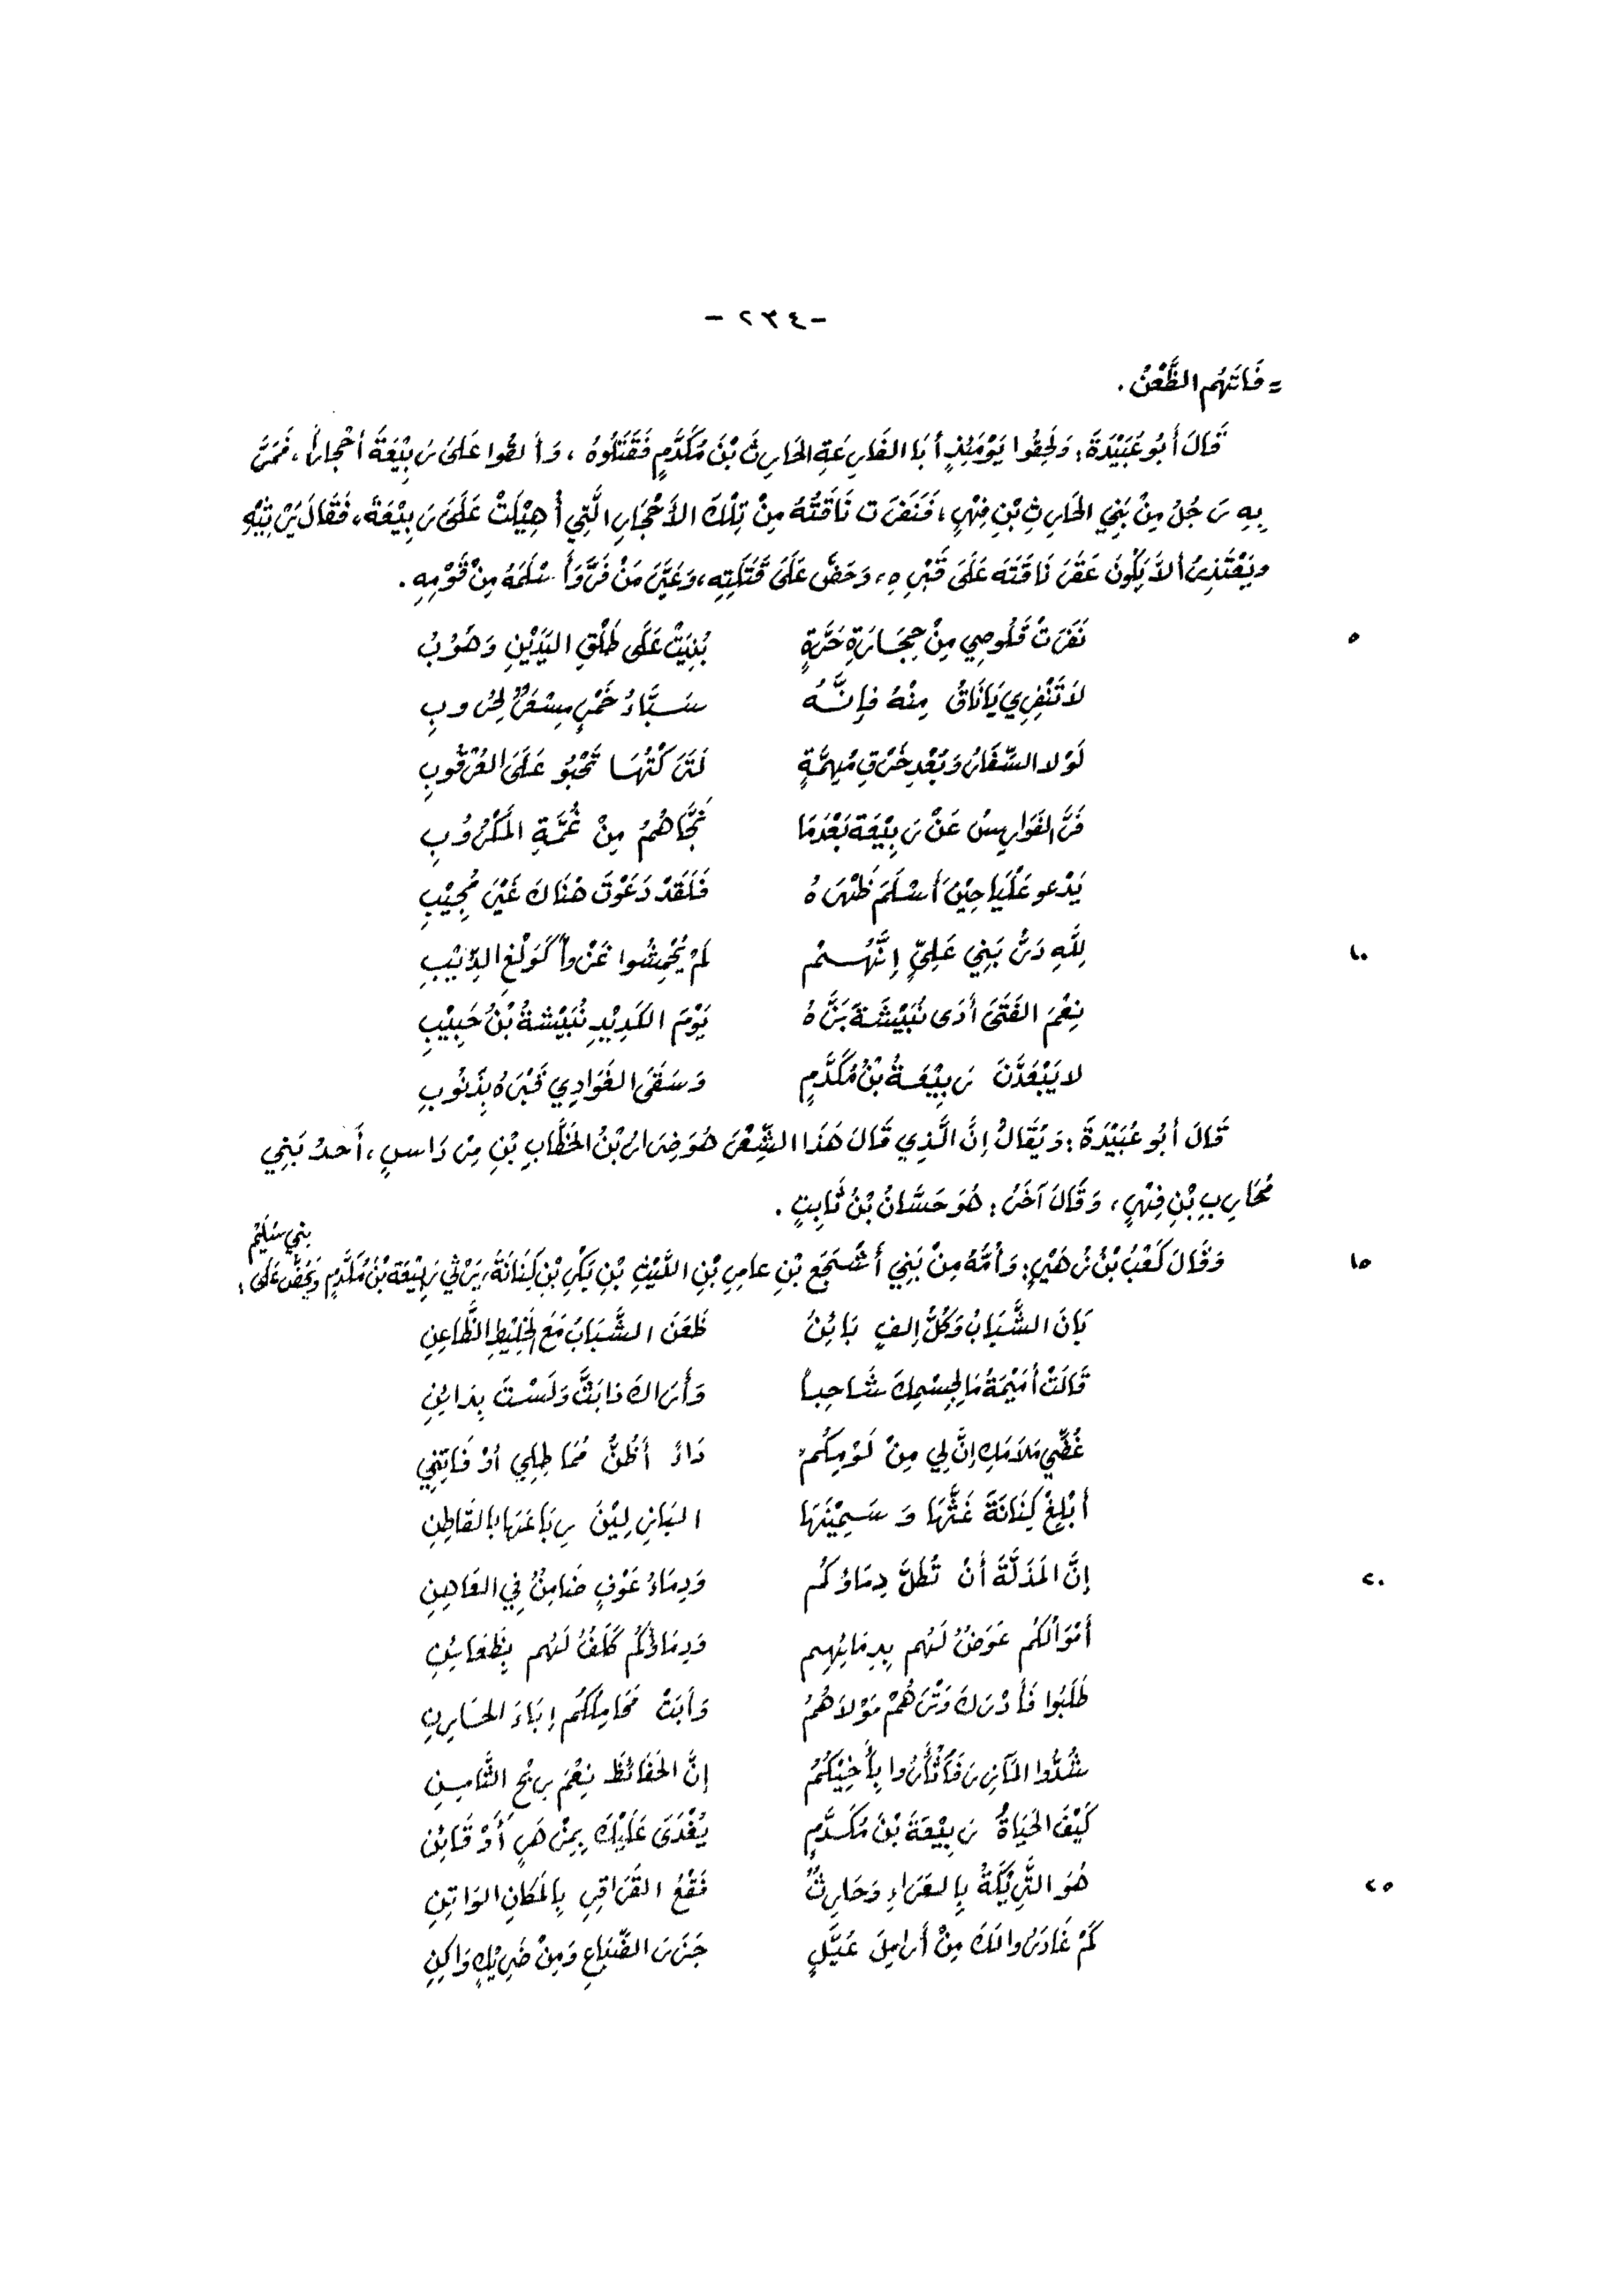 - ٤٣٢ -
= فَاتَهُم الظُّعْنُ .
قَالَ أَبُو عُبَيْدَةَ : وَلَحِقُوا يَوْمَئِذٍ أَبَا الفَارِعَةِ الحَارِثَ بْنَ مُكَدَّمٍ فَقَتَلُوهُ ، وَأَلقُوا عَلَى رَبِيْعَةَ أحْجاراً ، فَمَرَّ
بِهِ رَجُلٌ مِنْ بَنِي الحَارِثِ بْنِ فِهْرٍ ، فَنَفَرَت نَاقَتُهُ مِنْ تِلْكَ الأَحْجَارِ الَّتِي أُهِيْلَتْ عَلَى رَبِيْعَةَ ، فَقَالَ يَرْثِيْهِ
ويَعْتَذِرُ ألاَّ يَكُونَ عَقَرَ نَاقَتَه عَلَى قَبْرِهِ ، وَحَضَّ عَلَى قَتَلَتِهِ ، وَعَيَّرَ مَنْ فَرَّ وَأَسْلَمَهُ مِنْ قَوْمِهِ .
٥ نَفَرَتْ قَلُوصِي مِنْ حِجَارَةِ حَرَّةٍ بُنِيَتْ عَلَى طَلْقِ اليَدَيْنِ وَهُوْبُ
لاَ تَنْفِرِي يَا نَاقُ مِنْهُ فإِنَّهُ سَبَّاءُ خَمْرٍ مِسْعَرٌ لِحُرُوبِ
لَوْلا السِّفَارُ وَبُعْدِ خَرْقٍ مُهِمَّةٍ لَتَرَكْتُهَا تَحْبُو عَلَى العُرْقُوبِ
فَرَّ الفَوَارِسُ عَنْ رَبِيْعَةَ بَعْدَمَا نَجَّاهُمُ مِنْ غُمَّةِ المَكْرُوبِ
يَدْعو عَلْيَا حِيْنَ أَسْلَمَ ظَهْرَهُ فَلَقَدْ دَعَوْتَ هُنَاكَ غَيْرَ مُجِيْبِ
١٠ لِلَّهِ دَرُّ بَنِي عَلِيٍّ إِنَّهُمْ لَمْ يُحْمِشُوا غَزْواً كَوَلْغِ الذِّئْيبِ
نِعْمَ الفَتَى أَدَى نُبَيْشَةَ بَزَّهُ يَوْمَ الكَدِيْدِ نُبَيْشةُ بْنُ حَبِيْبِ
لا يَبْعَدَنَّ رَبِيْعَةُ بْنُ مُكَدَّمٍ وَسَقَى الغَوَادِي قَبْرَهُ بِذَنُوبِ
قَالَ أَبُو عُبَيْدَةَ : وَيُقَالُ إِنَّ الَّذِي قَالَ هَذَا الشِّعْرَ هُوَ ضِرَارُ بْنُ الخَطَّابِ بْنِ مِرْدَاسٍ ، أَحدُ بَنِي
مُحَارِبِ بْنِ فِهْرٍ ، وَقَالَ آخَرُ : هُوَ حَسَّانُ بْنُ ثَابِتٍ .
١٥ وَقَالَ كَعْبُ بْنُ زُهَيْرٍ : وَأُمُّهُ مِنْ بَنِي أَشْجَعَ بْنِ عامِرِ بْنِ اللَّيْثِ بْنِ بَكْرِ بْنِ كِنَانَةَ ، يَرْثِي رَبِيْعَةَ بْنَ مُكَدَّمٍ وَيَحُضُّ عَلَى بني سُلَيْمٍ :
بَانَ الشَّبَابُ وَكُلُّ إِلفٍ بَائِنُ ظَعَنَ الشَّبَابُ مَعَ الخَلِيْطِ الظَّاعِنِ
قَالَتْ أُمَيْمَةُ مَا لِجِسْمِكَ شَاحِباً وَأَرَاكَ ذا بَثٍّ وَلَسْتَ بِدَائِنِ
غُضِّي مَلاَمَكِ إِنَّ لِي مِنْ لَوْمِكُمْ دَاءً أَظُنُّ مُمَاطِلِي أوْ فَاتِنِي
أَبْلِغْ كِنَانَةَ غَثَّهَا وَسَمِيْنَهَا البَاذِلِيْنَ رِبَاعَهَا بالقَاطِنِ
٢٠ إِنَّ المَذَلَّةَ أَنْ تُطَلَّ دِمَاؤكُم وَدِمَاءُ عَوْفٍ ضَامِنٌ فِي العَاهِنِ
أَمْوَالُكُم عَوَضٌ لَهُم بِدِمَائِهِم وَدِمَاؤُكُمْ كَلَفٌ لَهُم بِظَعَائِنِ
طَلَبُوا فَأَدْرَكَ وَتْرَهُمْ مَوْلاَهُمُ وَأَبَتْ مَحَامِلُكُم إِبَاءَ الحَارِنِ
شُدُّوا المَآزِرَ فَاثْأَرُوا بِأَخِيْكُمُ إِنَّ الحَفَائِظَ نِعْمَ رِبْحُ الثَّامِنِ
كَيْفَ الحَيَاةُ رَبِيْعَةَ بْنَ مُكَدَّمٍ يُغْدَى عَلَيْكَ بِمِزْهَرٍ أَوْ قَائِنِ
٢٥ هُوَ التَّرِيْكَةُ بِالعَرَاءِ وَحَارِثٌ فَقْعُ القَرَاقِرِ بِالمَكَانِ الوَاتِنِ
كَمْ غَادَرُوا لَكَ مِنْ أَرامِلَ عُيَّلٍ جَزَرَ الضِّبَاعِ وَمِنْ ضَرِيْكٍ وَاكِنِ